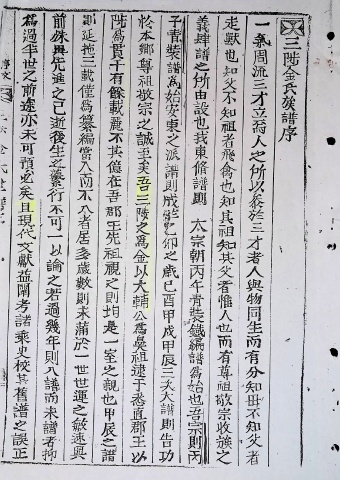 三陟金氏族譜序
一氣周流三才立焉人之所以參於三才者人與物同生而有分知母不知父者
走獸也知父不知祖者飛禽也知其祖知其父者惟人也而有尊祖敬宗收族之
義肆譜之所由設也我東修譜則 太宗朝丙午青裝鐵編譜爲始也吾宗則丙
子青裝譜爲始安東之派譜則成於乙卯之歲已酉甲戌甲辰三次大譜則告功
於本鄉尊祖敬宗之誠至矣吾三陟之爲金以大輔公爲鼻祖逮于悉直郡王以
陟爲貫千有餘載麗不其億在吾郡王先祖視之則均是一室之親也甲辰之譜
延拖三載僅爲纂編當入而不入者居多歲數則未滿於一世世運之敏速與
前殊異先進之已逝後生之蕃衍不可一以論之若過幾年則入譜而未譜者抑
爲過半世之前途亦未可預必矣且現代文獻益闡考諸乘史校其舊譜之誤正
序文